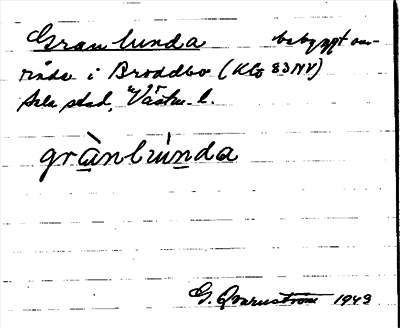 Granlunda bebyggt om-
råde i Broddbo (Kbl 83NV)
Sala stad, Västm. l.
grànlùnda
G. Qvarnström 1943